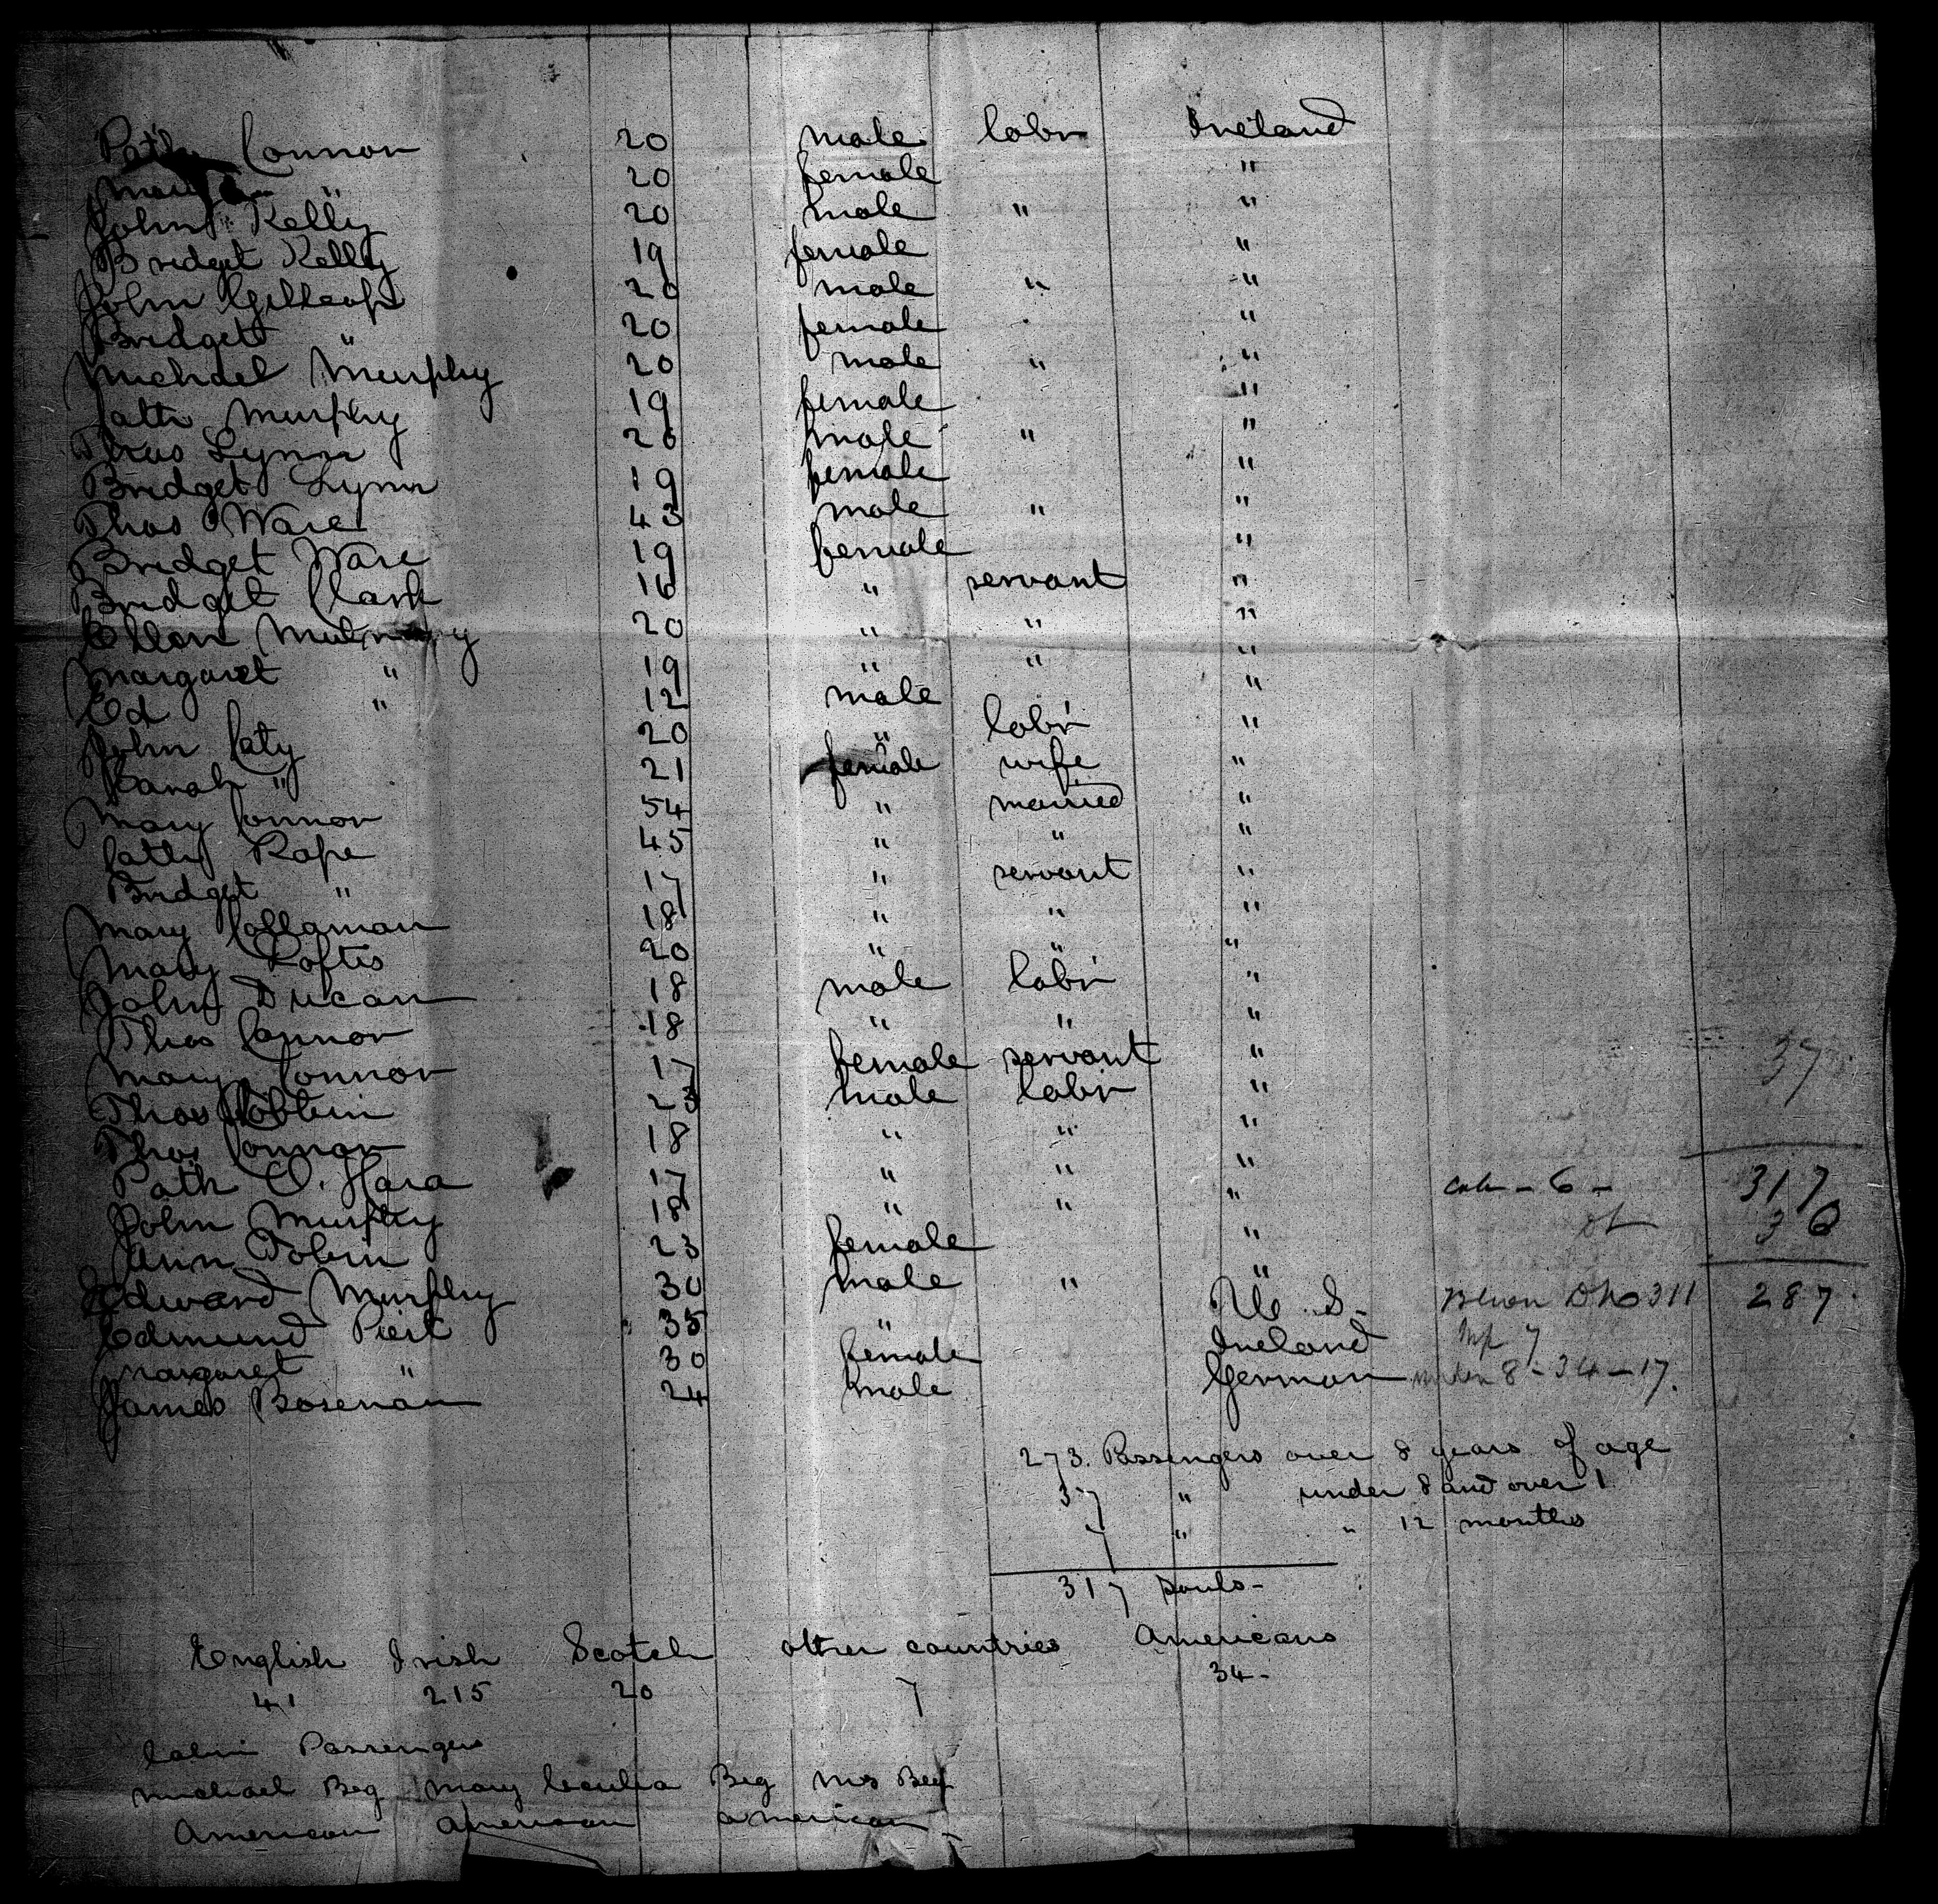 Path Connor 20 male labr Ireland
Mary " 20 female "
John Kelly 20 male " "
Bridget Kelly 19 female "
John Gilleaps 20 male " "
Bridget " 20 female "
Michael Murphy 20 male " "
Cath Murphy 19 female "
Thos Lynn 20 male " "
Bridget Lynn 19 female "
Thos Ware 43 male " "
Bridget Ware 19 female "
Bridget Clark 16 " servant "
Ellen 20 " " "
Margaret " 19 " " "
Ed " 12 male "
John Caty 20 " labr "
Sarah " 21 female wife "
Mary Connor 54 " married "
Cath Rape 45 " " "
Bridget " 17 " servant "
Mary Collaman 18 " " "
Mary Loftis 20 " " "
John Ducan 18 male labr "
Thos Connor 18 " " "
Mary Connor 17 female servant "
Thos 23 male labr "
Thos Connor 18 " " "
Path O. Hara 17 " " "
John Murphy 18 " " "
Ann Tobin 23 female "
Edward Murphy 30 male " "
Edmund Piert 35 " U. S.
Margaret " 30 female Ireland
James Bosenan 24 male German
37
317
cab - 6 -
30
311 287
7
under 8 - 34 - 17.
273. Passengers over 8 years of age
37 " under 8 and over 1
7 " " 12 months
317 souls -
English Irish Scotch other countries Americans
41 215 20 7 34 -
Cabin Passengers
Michael Beg Mary Cecilia Beg Mrs Beg
American American American